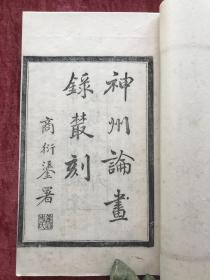 神州論畫
錄叢刻
商衍鎏署